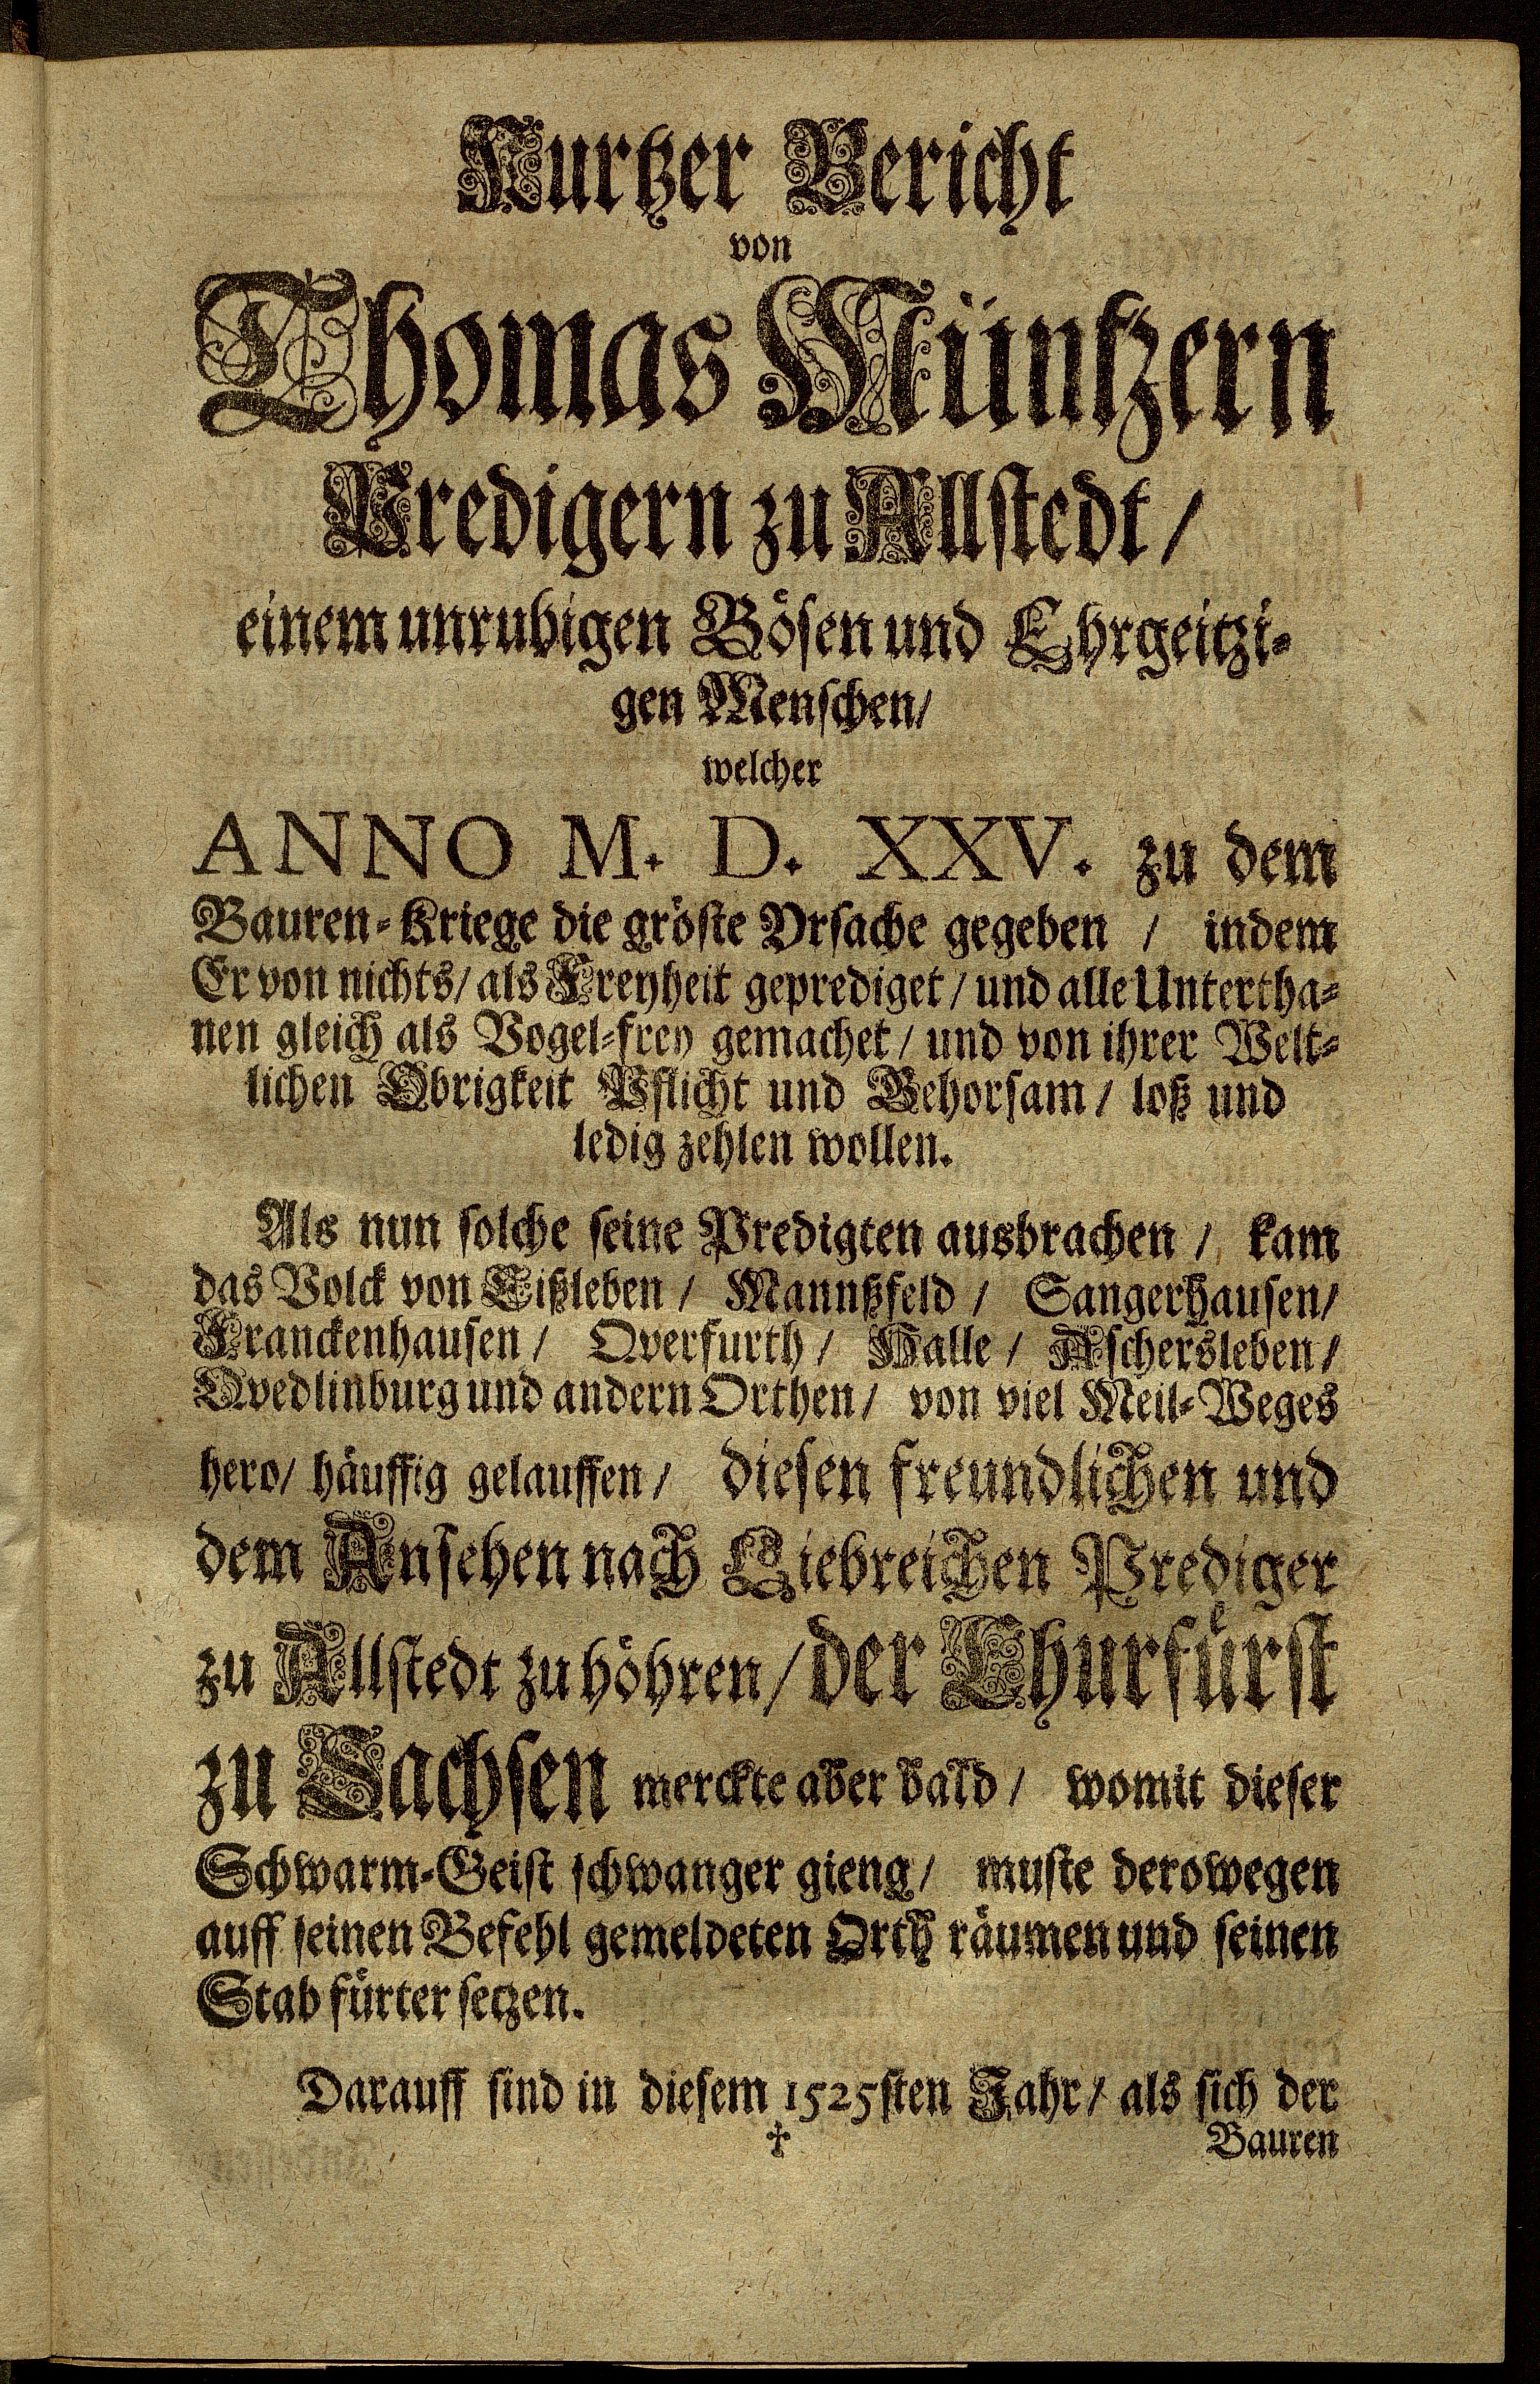 Kurtzer Bericht
von
Thomas Müntzern
Predigern zu Allstedt /
einem unruhigen Bösen und Ehrgeitzi-
gen Menschen /
welcher
ANNO M. D. XXV. zu dem
Bauren-Kriege die gröste Vrsache gegeben / indem
Er von nichts / als Freyheit geprediget / und alle Untertha-
nen gleich als Vogel-frey gemachet / und von ihrer Welt-
lichen Obrigkeit Pflicht und Gehorsam / loß und
ledig zehlen wollen.
Als nun solche seine Predigten ausbrachen / kam
das Volck von Eißleben / Mannßfeld / Sangerhausen /
Franckenhausen / Qverfurth / Halle / Aschersleben /
Qvedlinburg und andern Orthen / von viel Meil-Weges
hero / häuffig gelauffen / diesen freundlichen und
dem Ansehen nach Liebreichen Prediger
zu Allstedt zu höhren / der Churfürst
zu Sachsen merckte aber bald / womit dieser
Schwarm-Geist schwanger gieng / muste derowegen
auff seinen Befehl gemeldeten Orth räumen und seinen
Stab fürter setzen.
Darauff sind in diesem 1525sten Jahr / als sich der
† Bauren